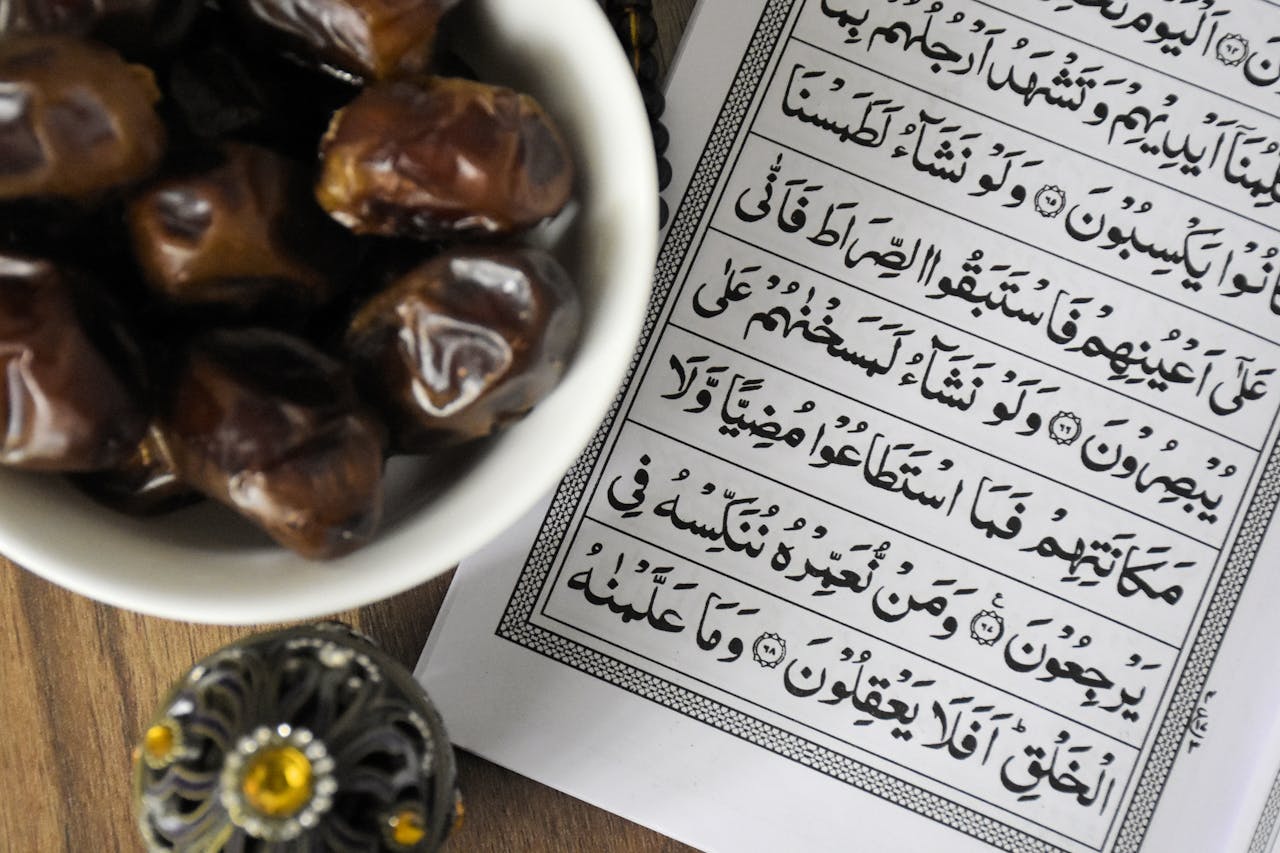 اَلْيَوْمَ
اَيْدِيْهِمْ وَتَشْهَدُ اَرْجُلُهُمْ بِمَا
يَكْسِبُوْنَ ۝۶۵ وَلَوْ نَشَآءُ لَطَمَسْنَا
عَلٰٓى اَعْيُنِهِمْ فَاسْتَبَقُوا الصِّرَاطَ فَاَنّٰى
يُبْصِرُوْنَ ۝۶۶ وَلَوْ نَشَآءُ لَمَسَخْنٰهُمْ عَلٰى
مَكَانَتِهِمْ فَمَا اسْتَطَاعُوْا مُضِيًّا وَّلَا
يَرْجِعُوْنَ ۝۶۷ وَمَنْ نُّعَمِّرْهُ نُنَكِّسْهُ فِى
الْخَلْقِ ؕ اَفَلَا يَعْقِلُوْنَ ۝۶۸ وَمَا عَلَّمْنٰهُ